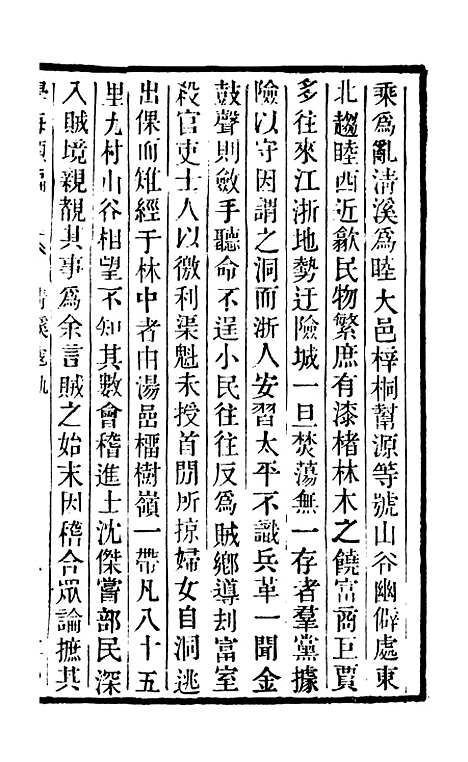 乘爲亂淸溪爲睦大邑梓桐幫源等號山谷幽僻處東
北趨睦西近歙民物繁庶有漆楮林木之饒富商巨賈
多往來江浙地勢迂險城一旦焚蕩無一存者羣黨據
險以守因謂之洞而浙人安習太平不識兵革一聞金
鼓聲則斂手聽命不逞小民往往反爲賊鄕導刦富室
殺官吏士人以徼利渠魁未授首閒所掠婦女自洞逃
出倮而雉經于林中者由湯嵒橊樹嶺一帶凡八十五
里九村山谷相望不知其數會稽進士沈傑嘗部民深
入賊境親覩其事爲余言賊之始末因稽合眾論摭其
學海類編
淸溪寇軌